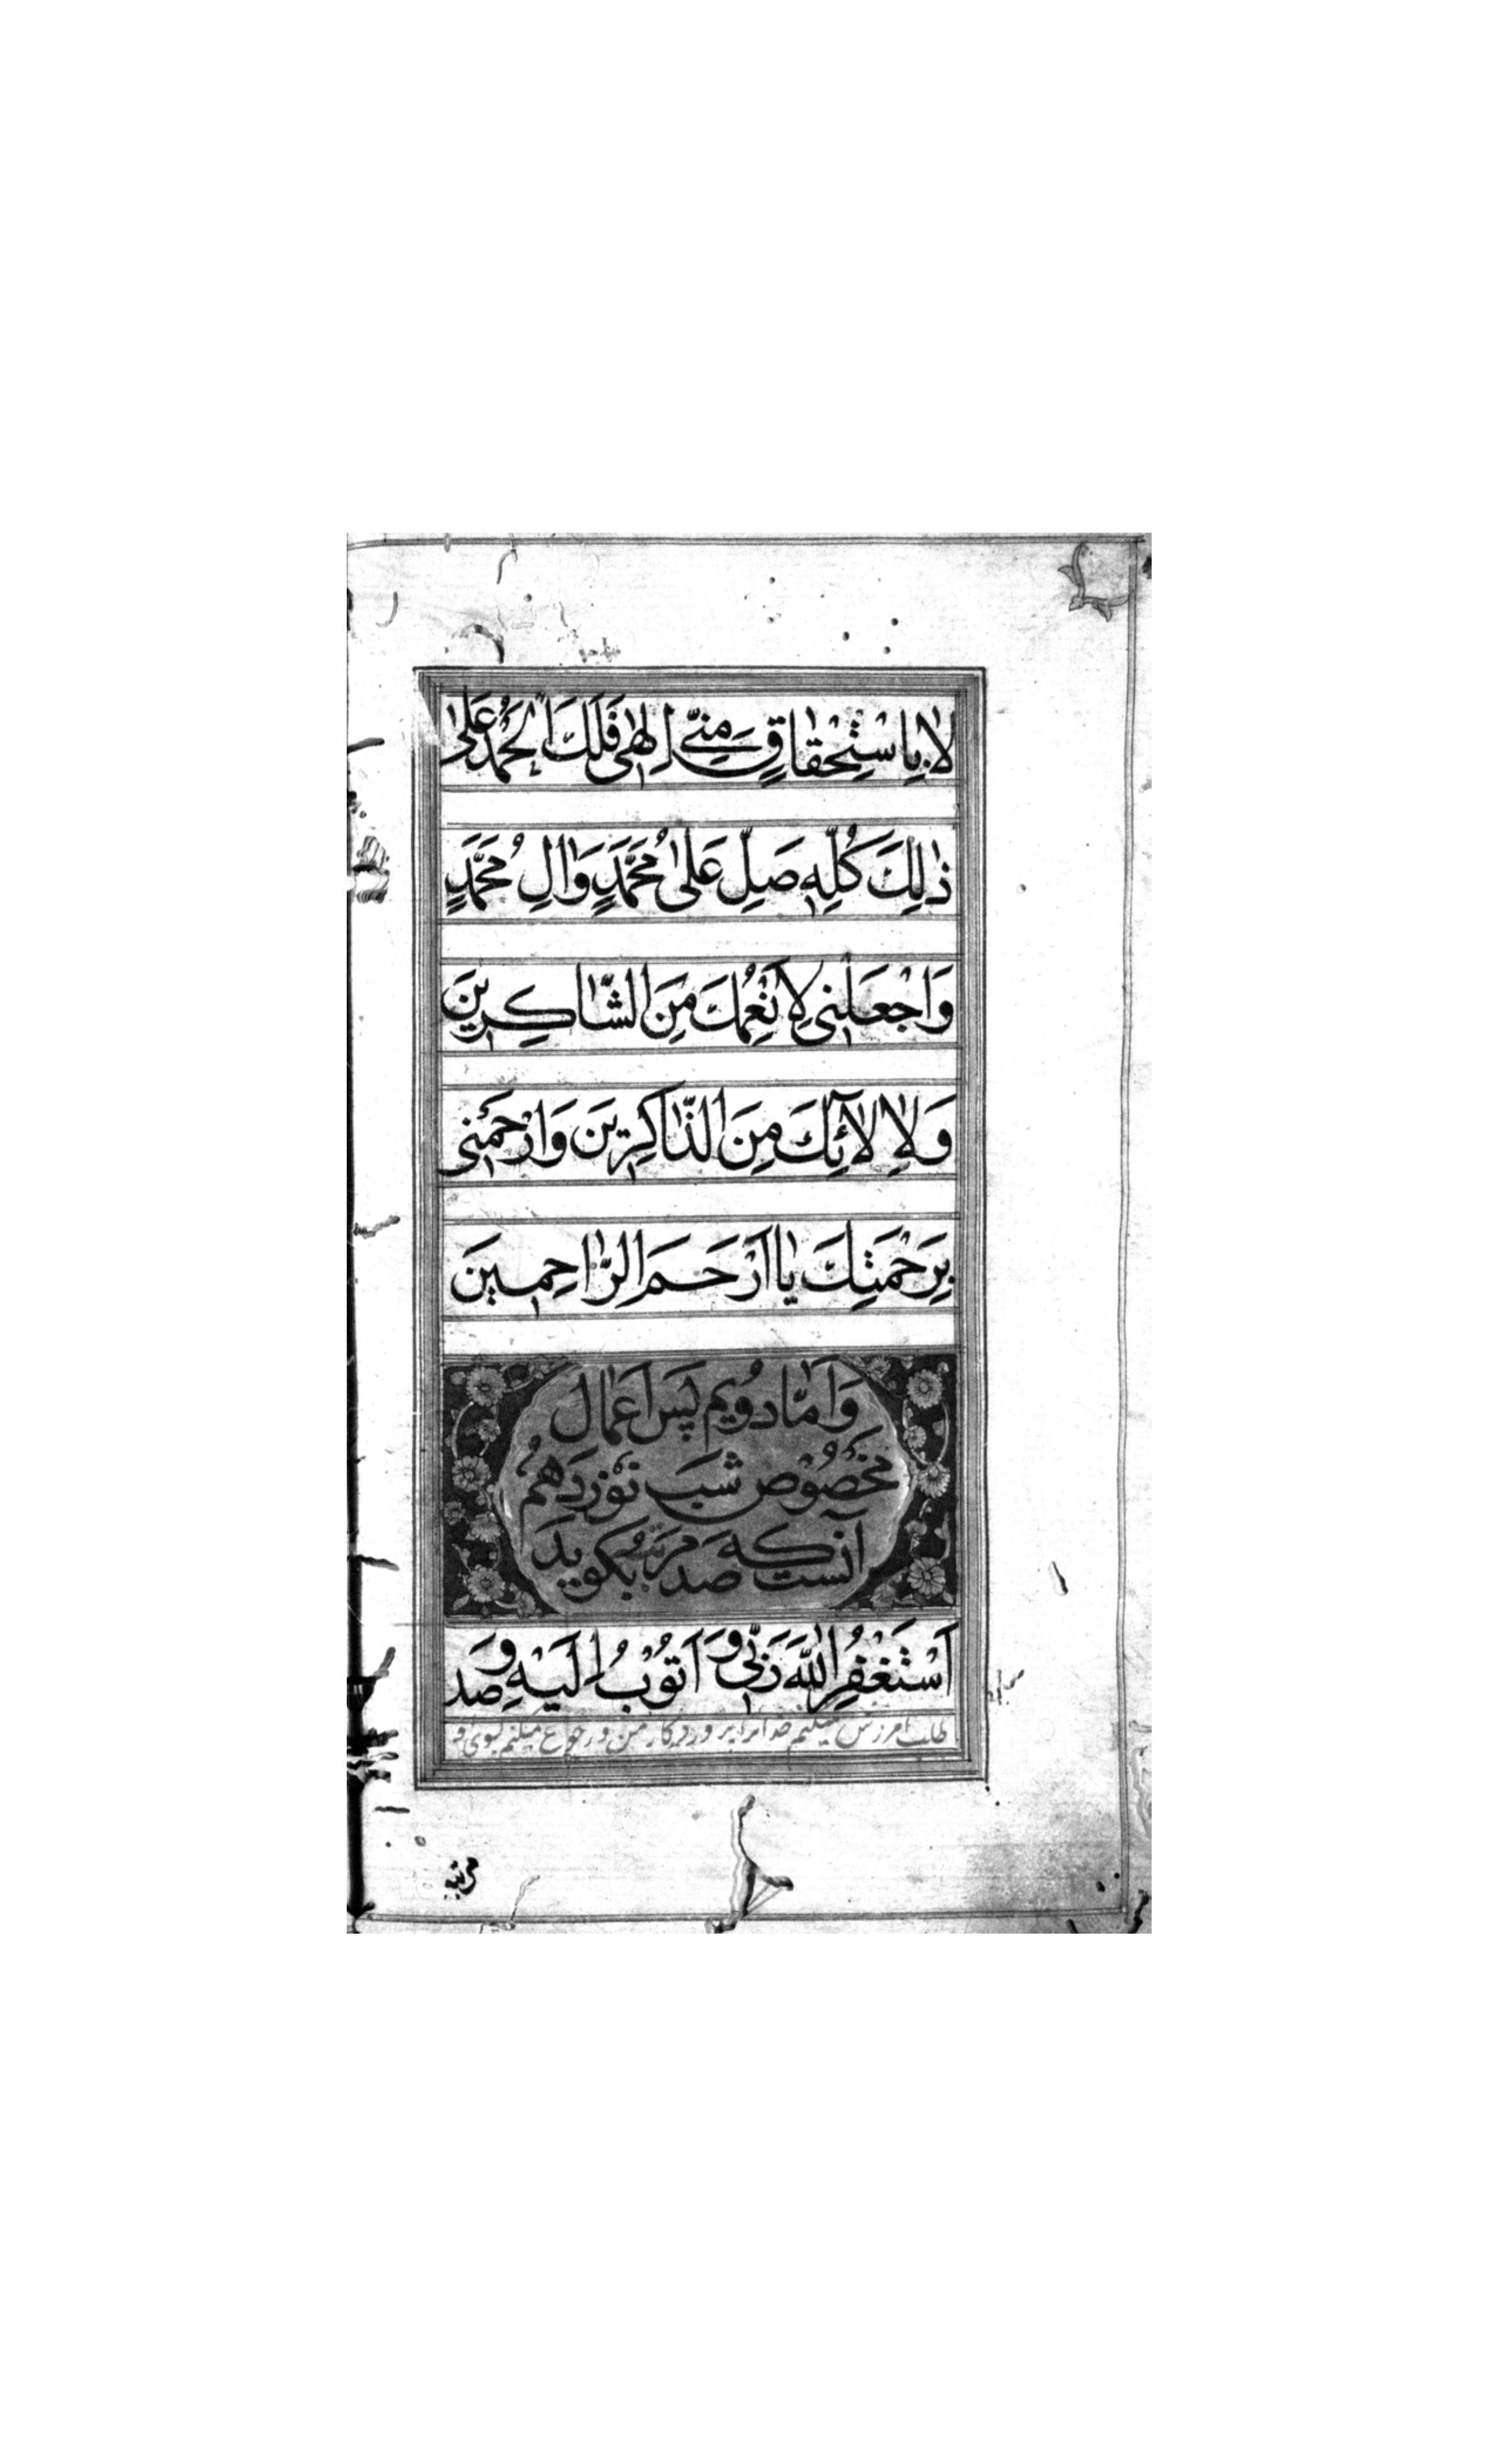 لَا بِاسْتِحْقَاقٍ مِنِّي اِلٰهِي فَلَكَ الْحَمْدُ عَلٰى
ذٰلِكَ كُلِّهِ صَلِّ عَلٰى مُحَمَّدٍ وَاٰلِ مُحَمَّدٍ
وَاجْعَلْنِي لِاَنْعُمِكَ مِنَ الشَّاكِرِينَ
وَلِاٰلَائِكَ مِنَ الذَّاكِرِينَ وَارْحَمْنِي
بِرَحْمَتِكَ يَا اَرْحَمَ الرَّاحِمِينَ
وَاَمَّا دُوِيم پَس اَعْمَال
مَخْصُوص شَب نَوْزدَهُم
آنست كه صَد مَرتَبه بُكويد
اَسْتَغْفِرُ اللهَ رَبِّي وَاَتُوبُ اِلَيْهِ وصَد
طلب آمرزش ميكنم خدا را پروردكار من و رجوع ميكنم بسوى او
مرتبه